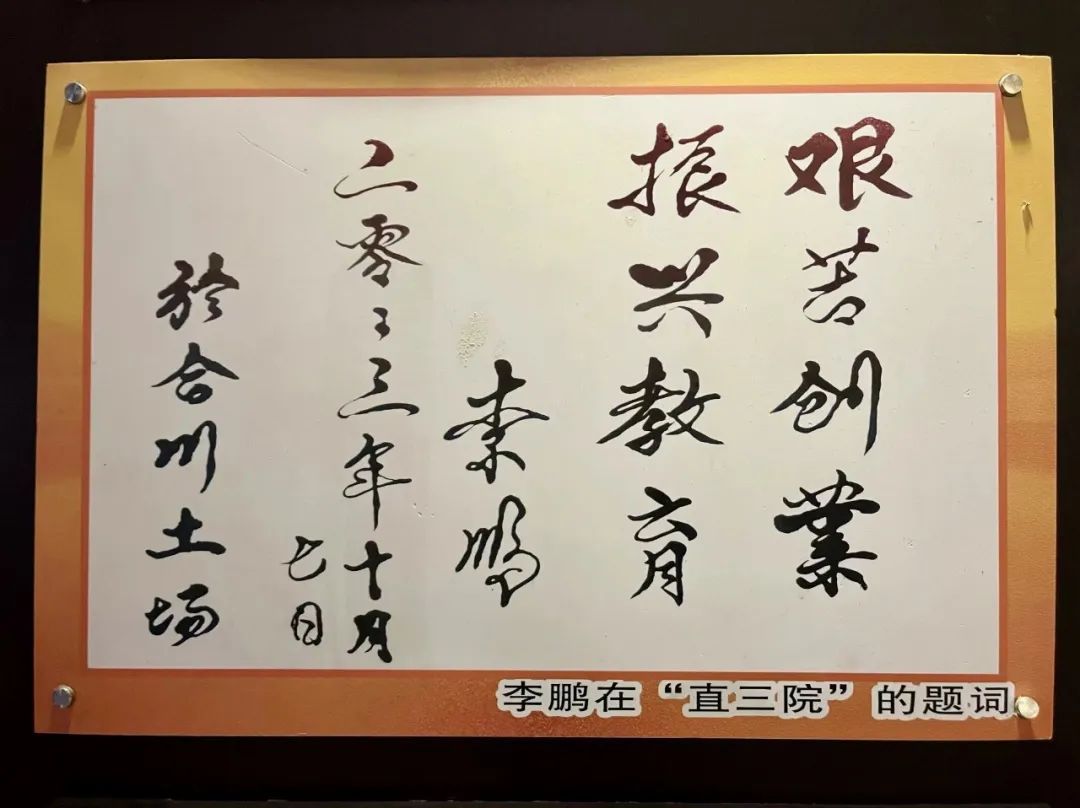 艰苦创业
振兴教育
李鹏
二零零三年十月
七日
於合川土场
李鹏在“直三院”的题词